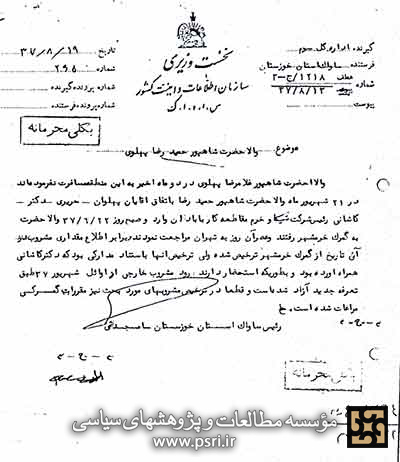 نخست وزیری
سازمان اطلاعات و امنیت کشور
س.ا.و.ا.ک
گیرنده اداره کل سوم
فرستنده ساواک استان خوزستان
شماره
عطف ۱۲۱۸/ج-۳
۳۷/۸/۱۳
پیوست
تاریخ ۳۷/۸/۱۹
شماره
شماره پرونده گیرنده
شماره پرونده فرستنده
بکلی محرمانه
موضوع والا حضرت شاهپور حمید رضا پهلوی
والا حضرت شاهپور غلامرضا پهلوی در دو ماه اخیر به این منطقه مسافرت نفرموده‌اند
در ۲۱ شهریور ماه والاحضرت شاهپور حمید رضا باتفاق آقایان پهلوان - حریری - دکتر -
کاشانی رئیس شرکت و خرم مقاطعه کار بابادان وارد و صبح روز ۳۷/۶/۲۲ والا حضرت
به گمرک خرمشهر رفتند و عصر آن روز به تهران مراجعت نمودند برابر اطلاع مقداری مشروب در
آن تاریخ از گمرک خرمشهر ترخیص شده ولی ترخیص آنها باستناد مدارکی بود که دکتر کاشانی
همراه آورده بود و بطوریکه استحضار دارند ورود مشروب خارجی از اوائل شهریور ۳۷ طبق
تعرفه جدید آزاد شده است و قطعا در ترخیص مشروبهای مورد بحث نیز مقررات گمرکی
مراعات شده است. خ
رئیس ساواک استان خوزستان
بکلی محرمانه
مؤسسه مطالعات و پژوهشهای سیاسی
www.psri.ir